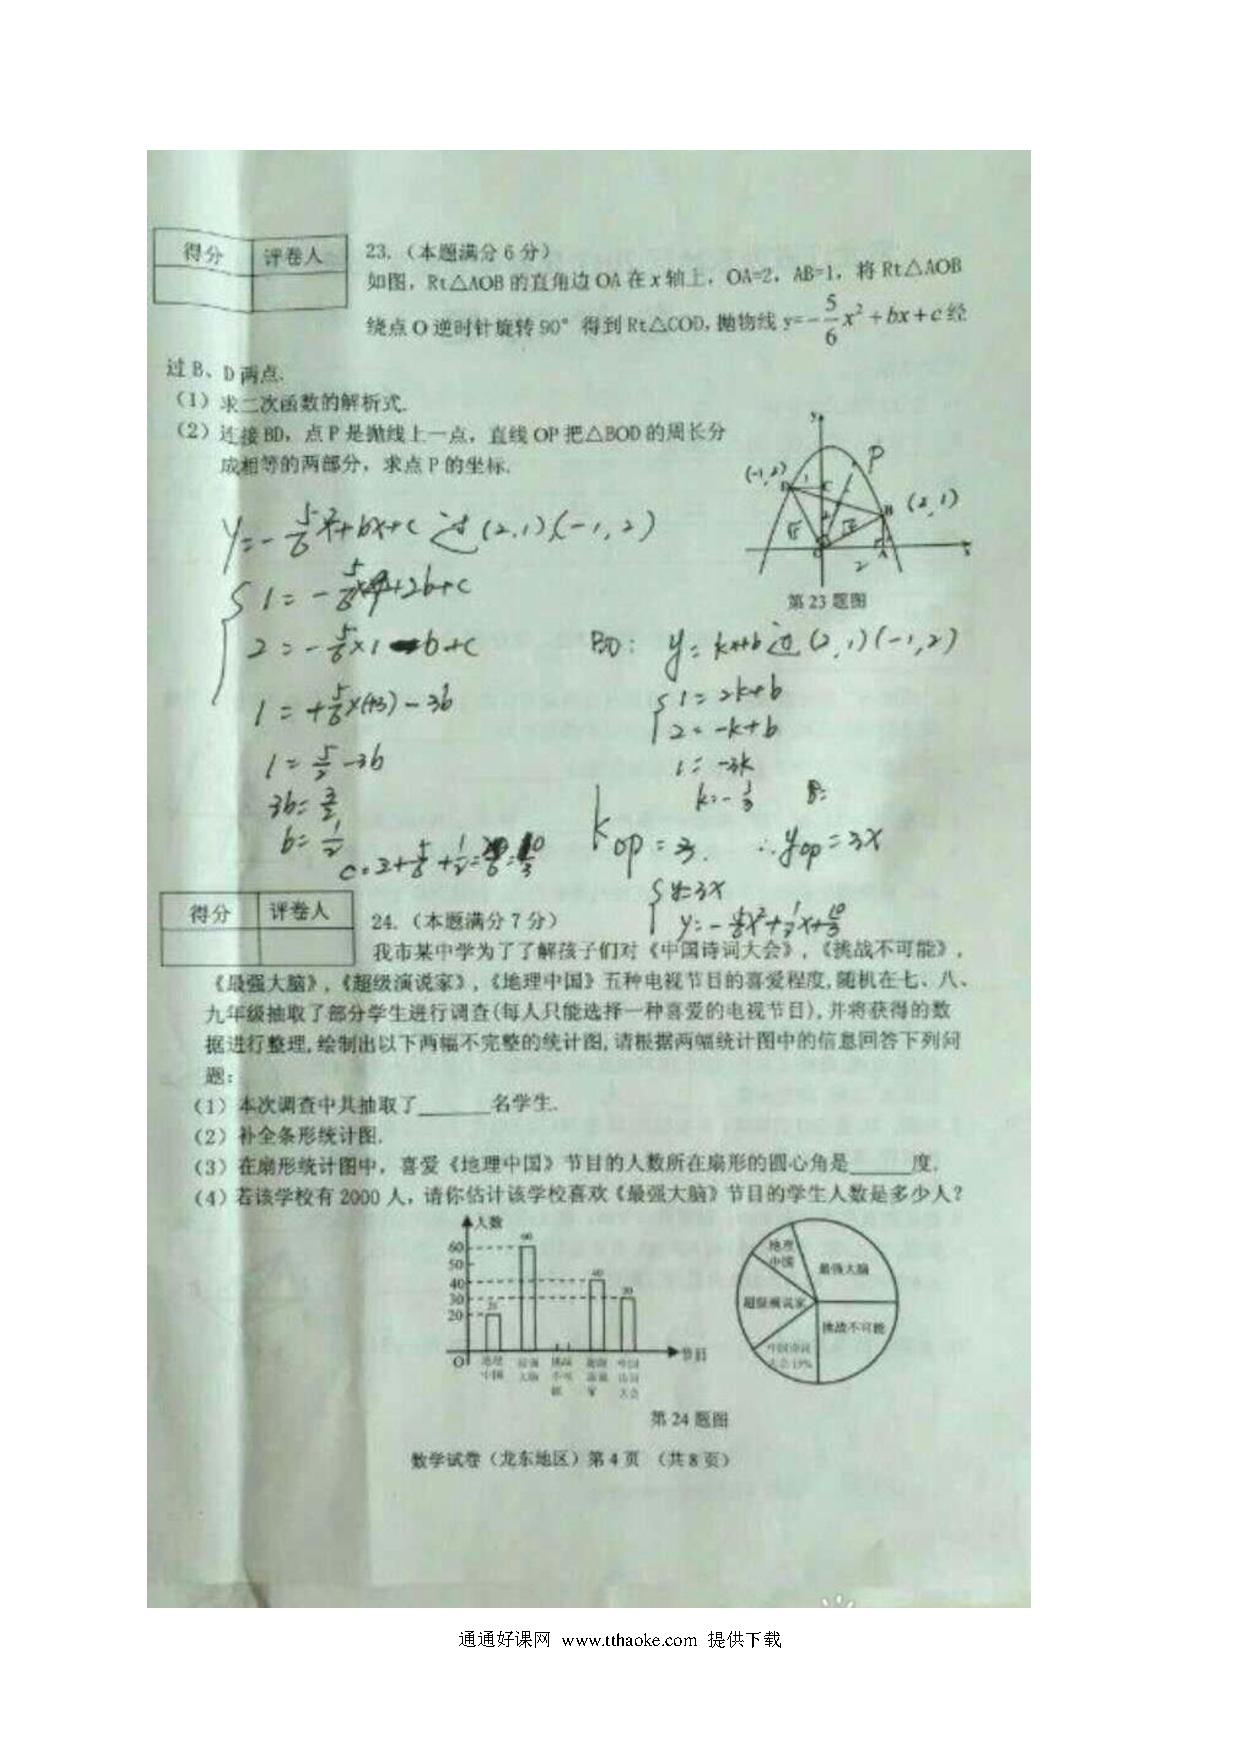 得分 评卷人
23.（本题满分6分）
如图，Rt△AOB的直角边OA在x轴上，OA=2，AB=1，将Rt△AOB
绕点O逆时针旋转90°得到Rt△COD,抛物线y=-5/6x²+bx+c经
过B、D两点.
（1）求二次函数的解析式.
（2）连接BD，点P是抛线上一点，直线OP把△BOD的周长分
成相等的两部分，求点P的坐标.
y
(-1,2) D 1 C P
(2,1) B
√5 √5
O 2 A x
第23题图
y=-5/6x²+bx+c 过(2,1)(-1,2)
1=-5/6×4+2b+c
2=-5/6×1-b+c
1=+5/6×(+3)-3b
1=5/2-3b
3b=3/2
b=1/2
c=2+5/6+1/2=20/6=10/3
BD: y=kx+b过(2,1)(-1,2)
1=2k+b
2=-k+b
1=-3k
k=-1/3
kop=3. ∴yop=3x
y=3x
y=-5/6x²+1/2x+10/3
得分 评卷人
24.（本题满分7分）
我市某中学为了了解孩子们对《中国诗词大会》，《挑战不可能》，
《最强大脑》，《超级演说家》，《地理中国》五种电视节目的喜爱程度,随机在七、八、
九年级抽取了部分学生进行调查(每人只能选择一种喜爱的电视节目),并将获得的数
据进行整理,绘制出以下两幅不完整的统计图,请根据两幅统计图中的信息回答下列问
题：
（1）本次调查中共抽取了______名学生.
（2）补全条形统计图.
（3）在扇形统计图中，喜爱《地理中国》节目的人数所在扇形的圆心角是______度.
（4）若该学校有2000人，请你估计该学校喜欢《最强大脑》节目的学生人数是多少人？
人数
60 50 40 30 20 O
20 60 40 30
地理中国 最强大脑 挑战不可能 超级演说家 中国诗词大会 节目
地理中国
最强大脑
超级演说家
挑战不可能
中国诗词大会15%
第24题图
数学试卷（龙东地区）第4页 （共8页）
通通好课网 www.tthaoke.com 提供下载